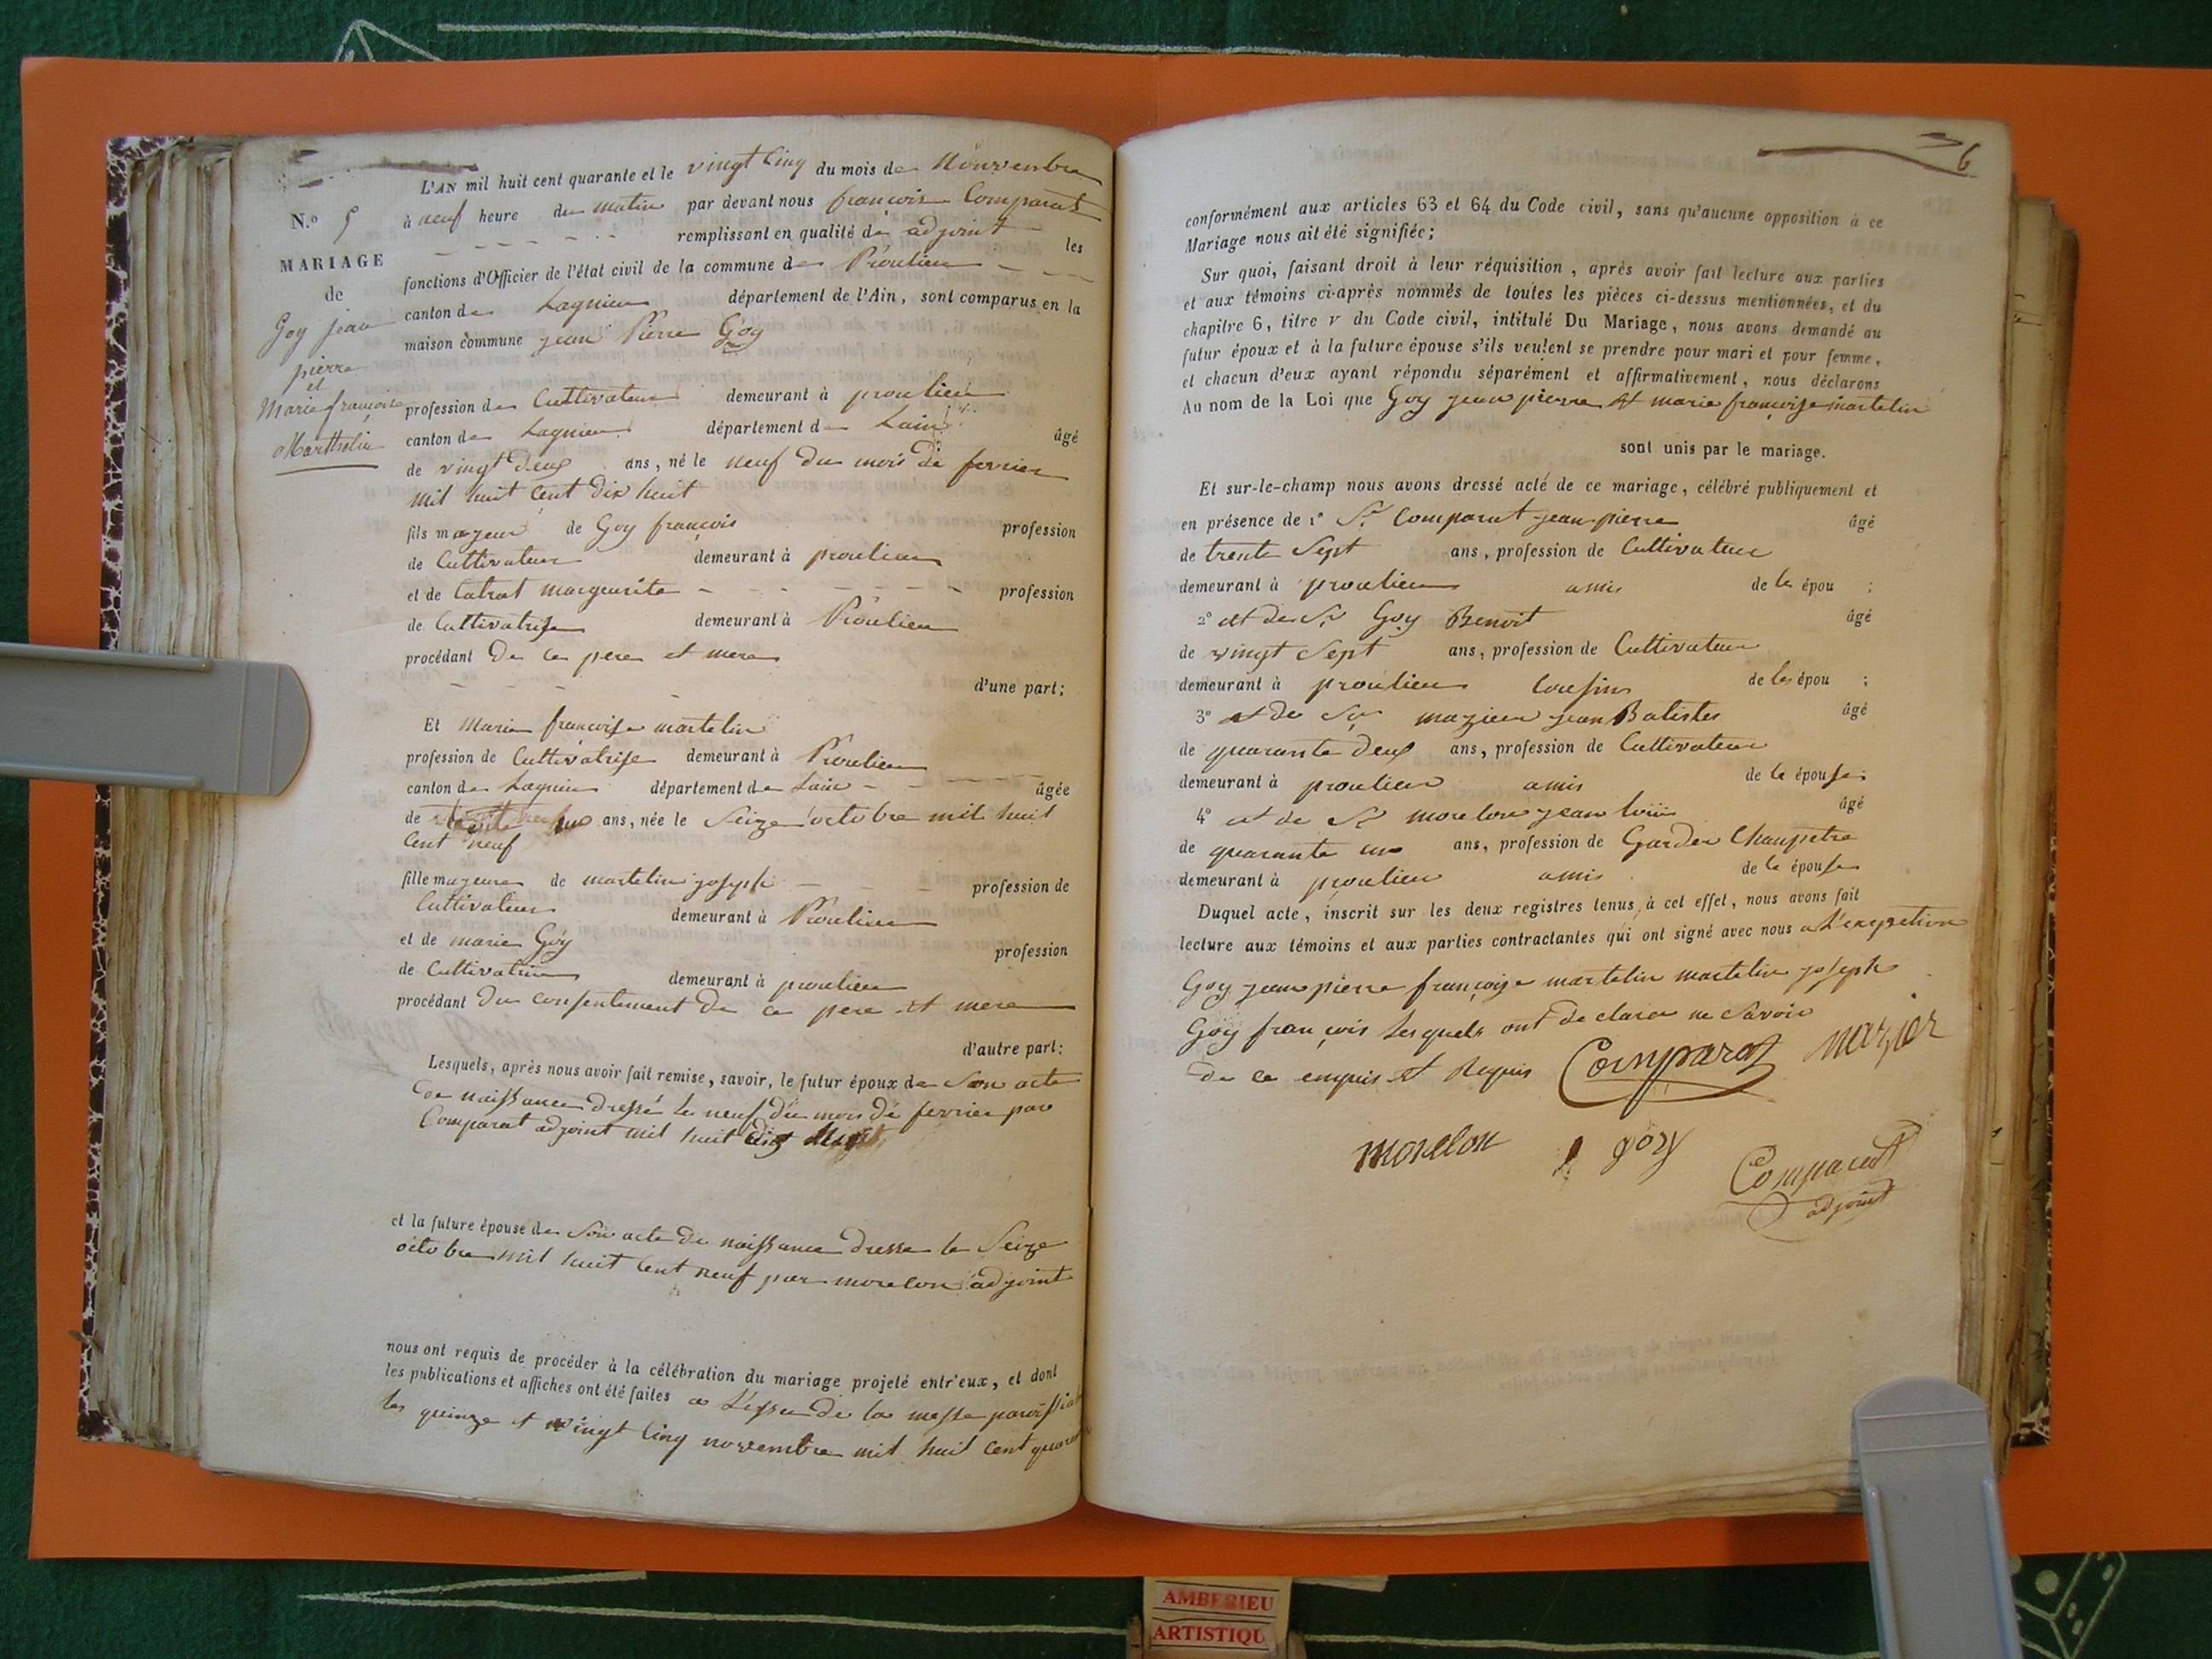 L'AN mil huit cent quarante et le vingt cinq du mois de Nouvembre
N.o 5 à neuf heure du matin par devant nous françois Comparat
remplissant en qualité de adjoint les
MARIAGE
fonctions d'Officier de l'état civil de la commune de Proulieu
de
canton de Lagnieu département de l'Ain, sont comparus en la
Goy jean
maison commune jean Pierre Goy
pierre
et
Marie françoise
Marthelin
profession de Cultivateur demeurant à proulieu
canton de Lagnieu département de Lain âgé
de vingt deux ans, né le neuf du mois de fevrier
mil huit cent dix huit
fils majeur de Goy françois profession
de Cultivateur demeurant à proulieu
et de Catrat marguerite profession
de Cultivatrise demeurant à Proulieu
procédant De ce pere et mere
d'une part;
Et Marie françoise martelin
profession de Cultivatrise demeurant à Proulieu
canton de Lagnieu département de Lain âgée
de ans, née le Seize octobre mil huit
Cent neuf
fille majeure de martelin joseph profession de
Cultivateur demeurant à Proulieu
et de marie Goy profession
de Cultivatrice demeurant à proulieu
procédant Du consentement De ce pere et mere
d'autre part:
Lesquels, après nous avoir fait remise, savoir, le futur époux de Son acte
De naissance dressé Le neuf du mois de fevrier par
Comparat adjoint mil huit
et la future épouse de Son acte De naissance dresse le Seize
octobre mil huit Cent neuf par morelon adjoint
nous ont requis de procéder à la célébration du mariage projeté entr'eux, et dont
les publications et affiches ont été faites a L'issue de la messe paroissial
les quinze et vingt Cinq novembre mil huit Cent quarante
6
conformément aux articles 63 et 64 du Code civil, sans qu'aucune opposition à ce
Mariage nous ait été signifiée;
Sur quoi, faisant droit à leur réquisition, après avoir fait lecture aux parties
et aux témoins ci-après nommés de toutes les pièces ci-dessus mentionnées, et du
chapitre 6, titre V du Code civil, intitulé Du Mariage, nous avons demandé au
futur époux et à la future épouse s'ils veulent se prendre pour mari et pour femme,
et chacun d'eux ayant répondu séparément et affirmativement, nous déclarons
Au nom de la Loi que Goy jean pierre et marie françoise martelin
sont unis par le mariage.
Et sur-le-champ nous avons dressé acte de ce mariage, célébré publiquement et
en présence de 1o Sr Comparat jean pierre âgé
de trente Sept ans, profession de Cultivateur
demeurant à proulieu amis de le épou ;
2o et de Sr Goy Benoit âgé
de vingt Sept ans, profession de Cultivateur
demeurant à proulieu Cousins de les épou ;
3o et de Sr mazier jean Batiste âgé
de quarante deux ans, profession de Cultivateur
demeurant à proulieu amis de le épouse;
4o et de Sr morelon jean loüis âgé
de quarante un ans, profession de Garder Champetre
demeurant à proulieu amis de le épouse
Duquel acte, inscrit sur les deux registres tenus à cet effet, nous avons fait
lecture aux témoins et aux parties contractantes qui ont signé avec nous a L'exeption
Goy jean pierre françoise martelin martelin joseph
Goy françois Lesquels ont declarer ne Savoir
De ce enquis et Requis Comparat mazier
morelon goy
Comparat
adjoint
AMBERIEU
ARTISTIQU